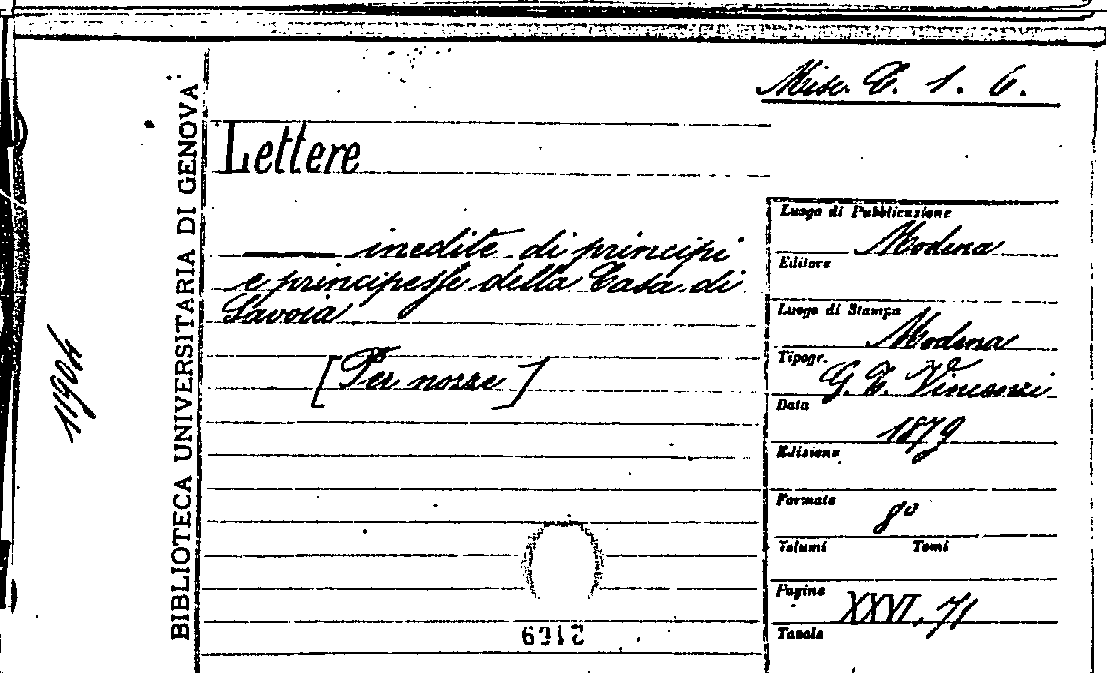 Misc. C. 1. 6.
Lettere
inedite di principi
e principesse della Casa di
Savoia
[Per nozze]
BIBLIOTECA UNIVERSITARIA DI GENOVA
11904
Luogo di Pubblicazione
Modena
Editore
Luogo di Stampa
Modena
Tipogr.
G. T. Vincenzi
Data
1879
Edizione
Formato
8º
Volumi Tomi
Pagine
XXVI, 71
Tavole